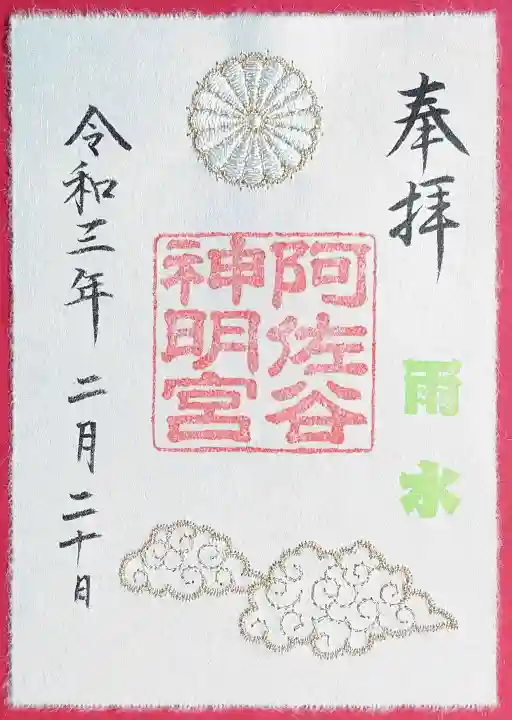 奉拝
雨水
阿佐谷
神明宮
令和三年 二月二十日